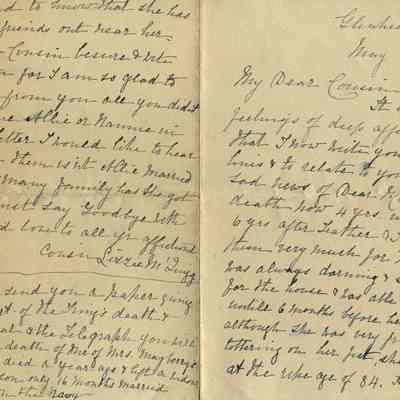 d to know that she has
friends out near her.
Cousin besure & write
for I am so glad to
from you all you didn't
Allie or Nannie in
letter I would like to hear
them is it Allie Married
many family has she got
must say Goodbye with
love to all yr affectionate
Cousin Lizzie M
send you a paper giving
of the death &
& the Telograph you will
death of one of Mrs. Mayberrys
died a year ago & left a widow
son only 16 months married
in the Navy
May
My Dear Cousin
It
feelings of deep
that I now write you
& to relate to you
sad news of Dear
death now 4 yrs
6 yrs after Father &
them very much for
was always darning &
for the house & was able
untill 6 months before her
although she was very
tottering on her feet, she
at the ripe age of 84.